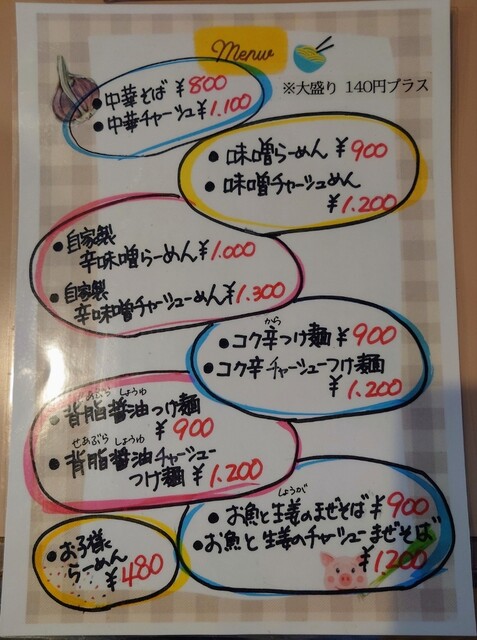 Menu
※大盛り 140円プラス
●中華そば ¥800
●中華チャーシュ¥1.100
●味噌らーめん ¥900
●味噌チャーシュめん
¥1.200
●自家製
辛味噌らーめん¥1.000
●自家製
辛味噌チャーシューめん¥1.300
から
●コク辛つけ麺 ¥900
●コク辛チャーシューつけ麺
¥1.200
せあぶら しょうゆ
●背脂醤油つけ麺
¥900
せあぶら しょうゆ
●背脂醤油チャーシュー
つけ麺 ¥1.200
しょうが
●お魚と生姜のまぜそば ¥900
●お魚と生姜のチャーシューまぜそば
¥1200
●お子様
らーめん
¥480